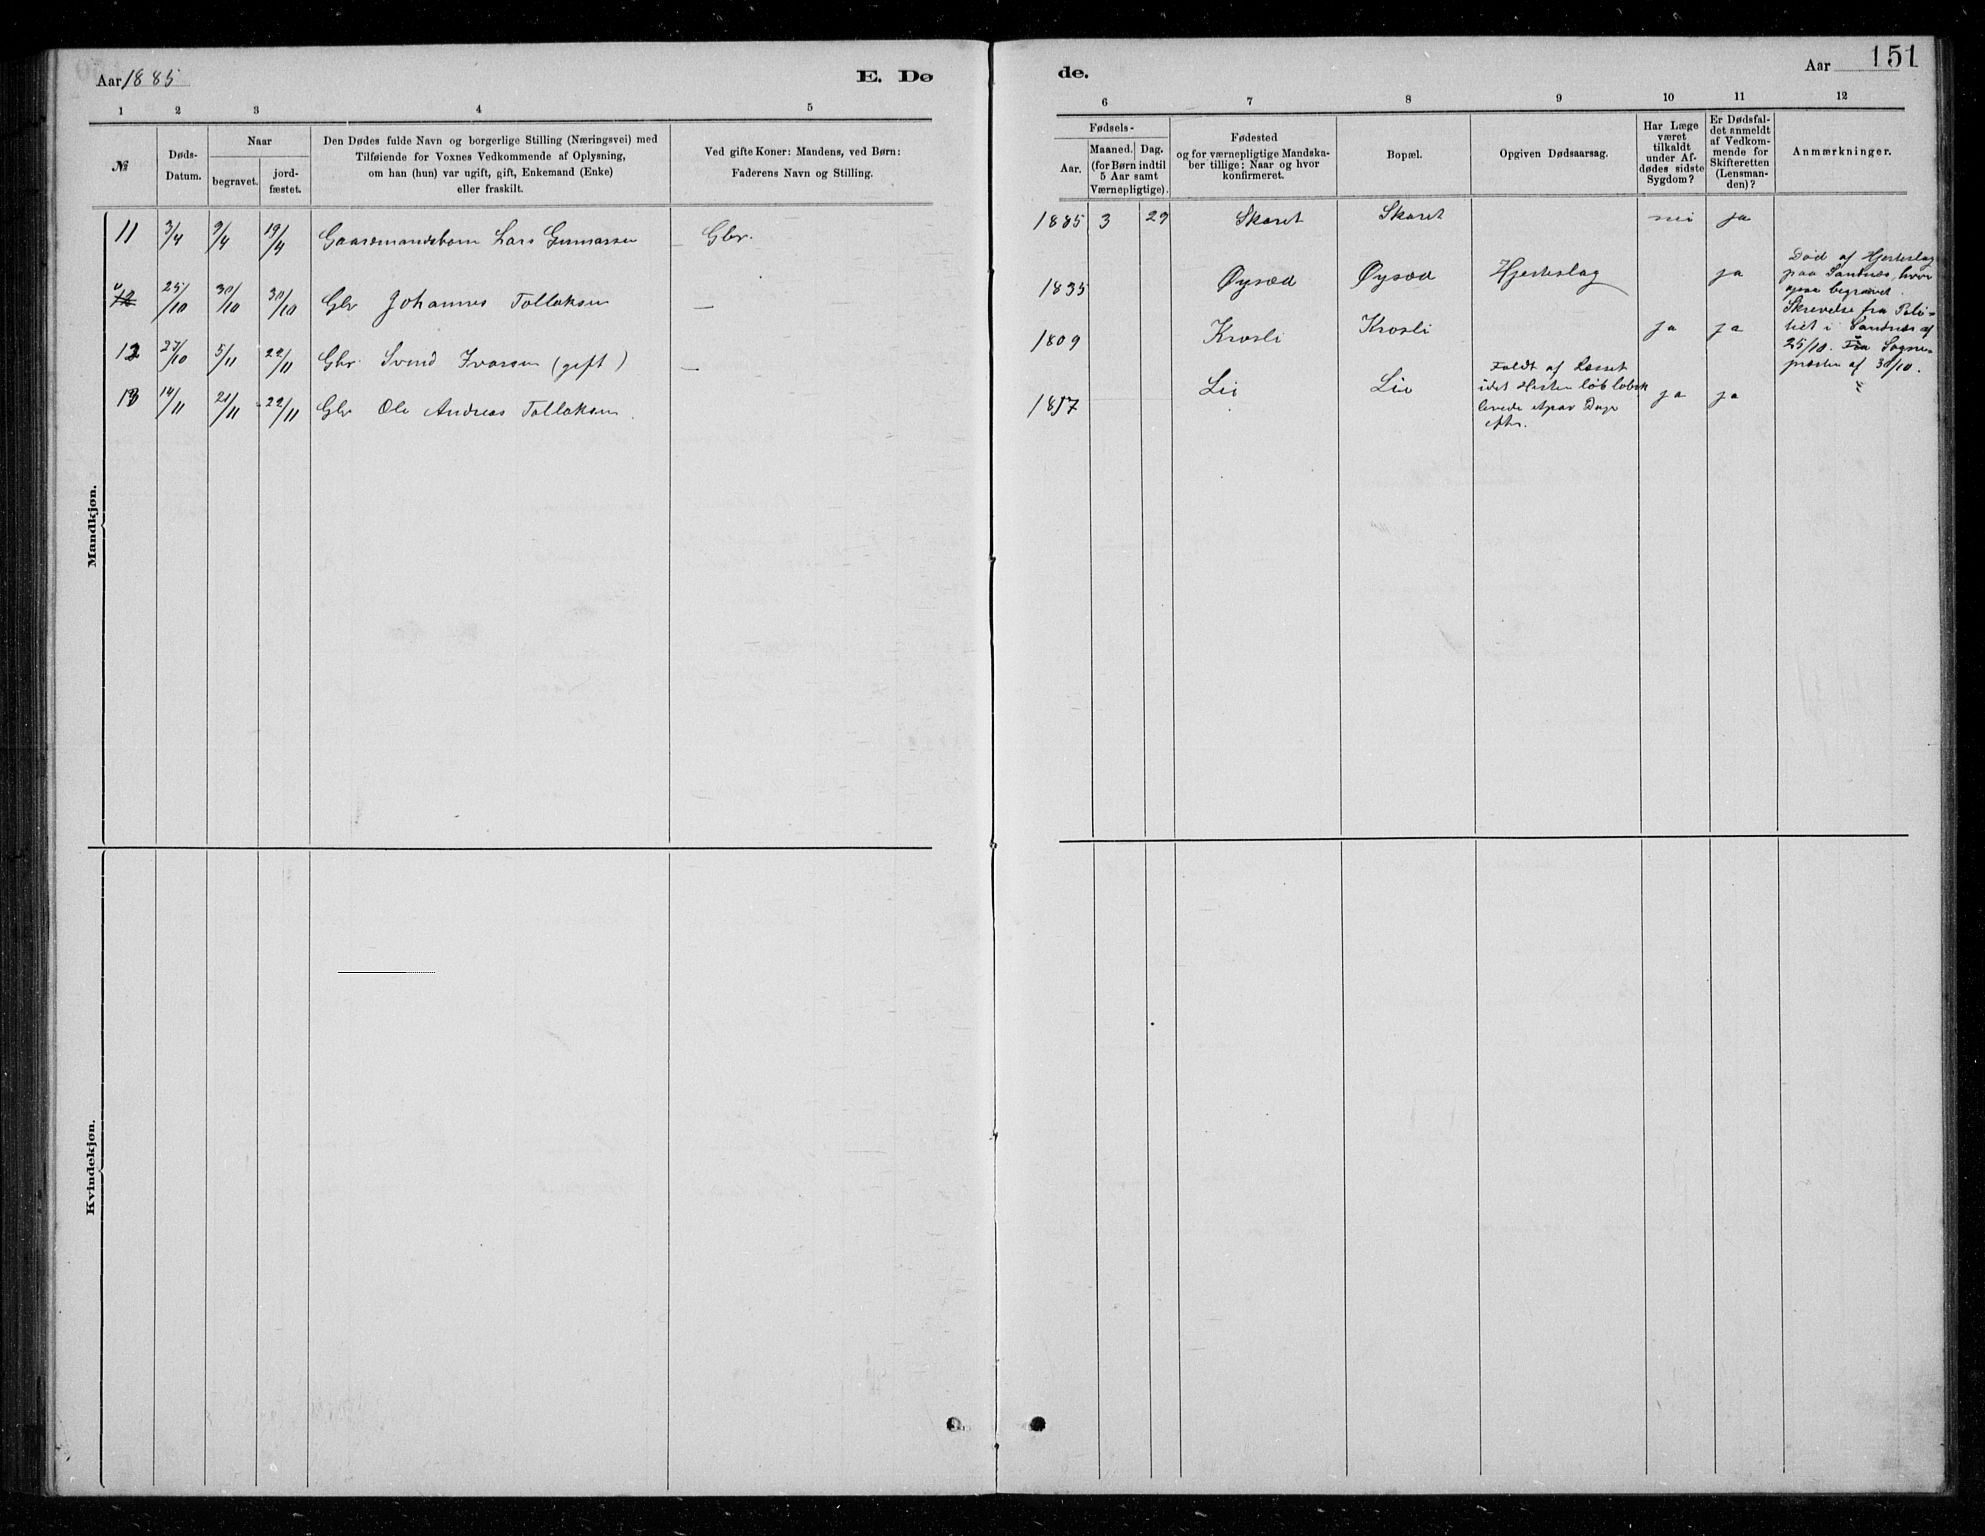 Aar 1885
E. Dø
de.
Aar
151
1 2 3 4 5
6 7 8 9 10 11 12
№
Døds-
Datum.
Naar
begravet.
jord-
fæstet.
Den Dødes fulde Navn og borgerlige Stilling (Næringsvei) med
Tilføiende for Voxnes Vedkommende af Oplysning,
om han (hun) var ugift, gift, Enkemand (Enke)
eller fraskilt.
Ved gifte Koner: Mandens, ved Børn:
Faderens Navn og Stilling.
Fødsels-
Aar.
Maaned. Dag.
(for Børn indtil
5 Aar samt
Værnepligtige).
Fødested
og for værnepligtige Mandska-
ber tillige: Naar og hvor
konfirmeret.
Bopæl.
Opgiven Dødsaarsag.
Har Læge
været
tilkaldt
under Af-
dødes sidste
Sygdom?
Er Dødsfal-
det anmeldt
af Vedkom-
mende for
Skifteretten
(Lensman-
den)?
Anmærkninger.
Mandkjøn.
11 3/4 9/4 19/4 Gaardmandsbarn Lars Gunnarsen Gbr. 1885 3 29 Skaret Skaret nei ja
12 25/10 30/10 30/10 Gbr Johannes Tollaksen — 1835 Øysæd Øysæd Hjerteslag ja
Død af Hjerteslag
paa Sandnæs, hvor
ogsaa begravet.
Skrevelse fra Poli-
tiet i Sandnæs af
25/10. Fra Sogne-
præsten af 30/10.
12 27/10 5/11 22/11 Gbr. Svend Ivarsen (gift) — 1809 Krosli Krosli ja ja
13 14/11 21/11 22/11 Gbr Ole Andreas Tollaksen. 1817 Lie Lie
Faldt af Læsset
idet Hesten løb løbsk
levede et par Dage
efter.
ja ja
Kvindekjøn.